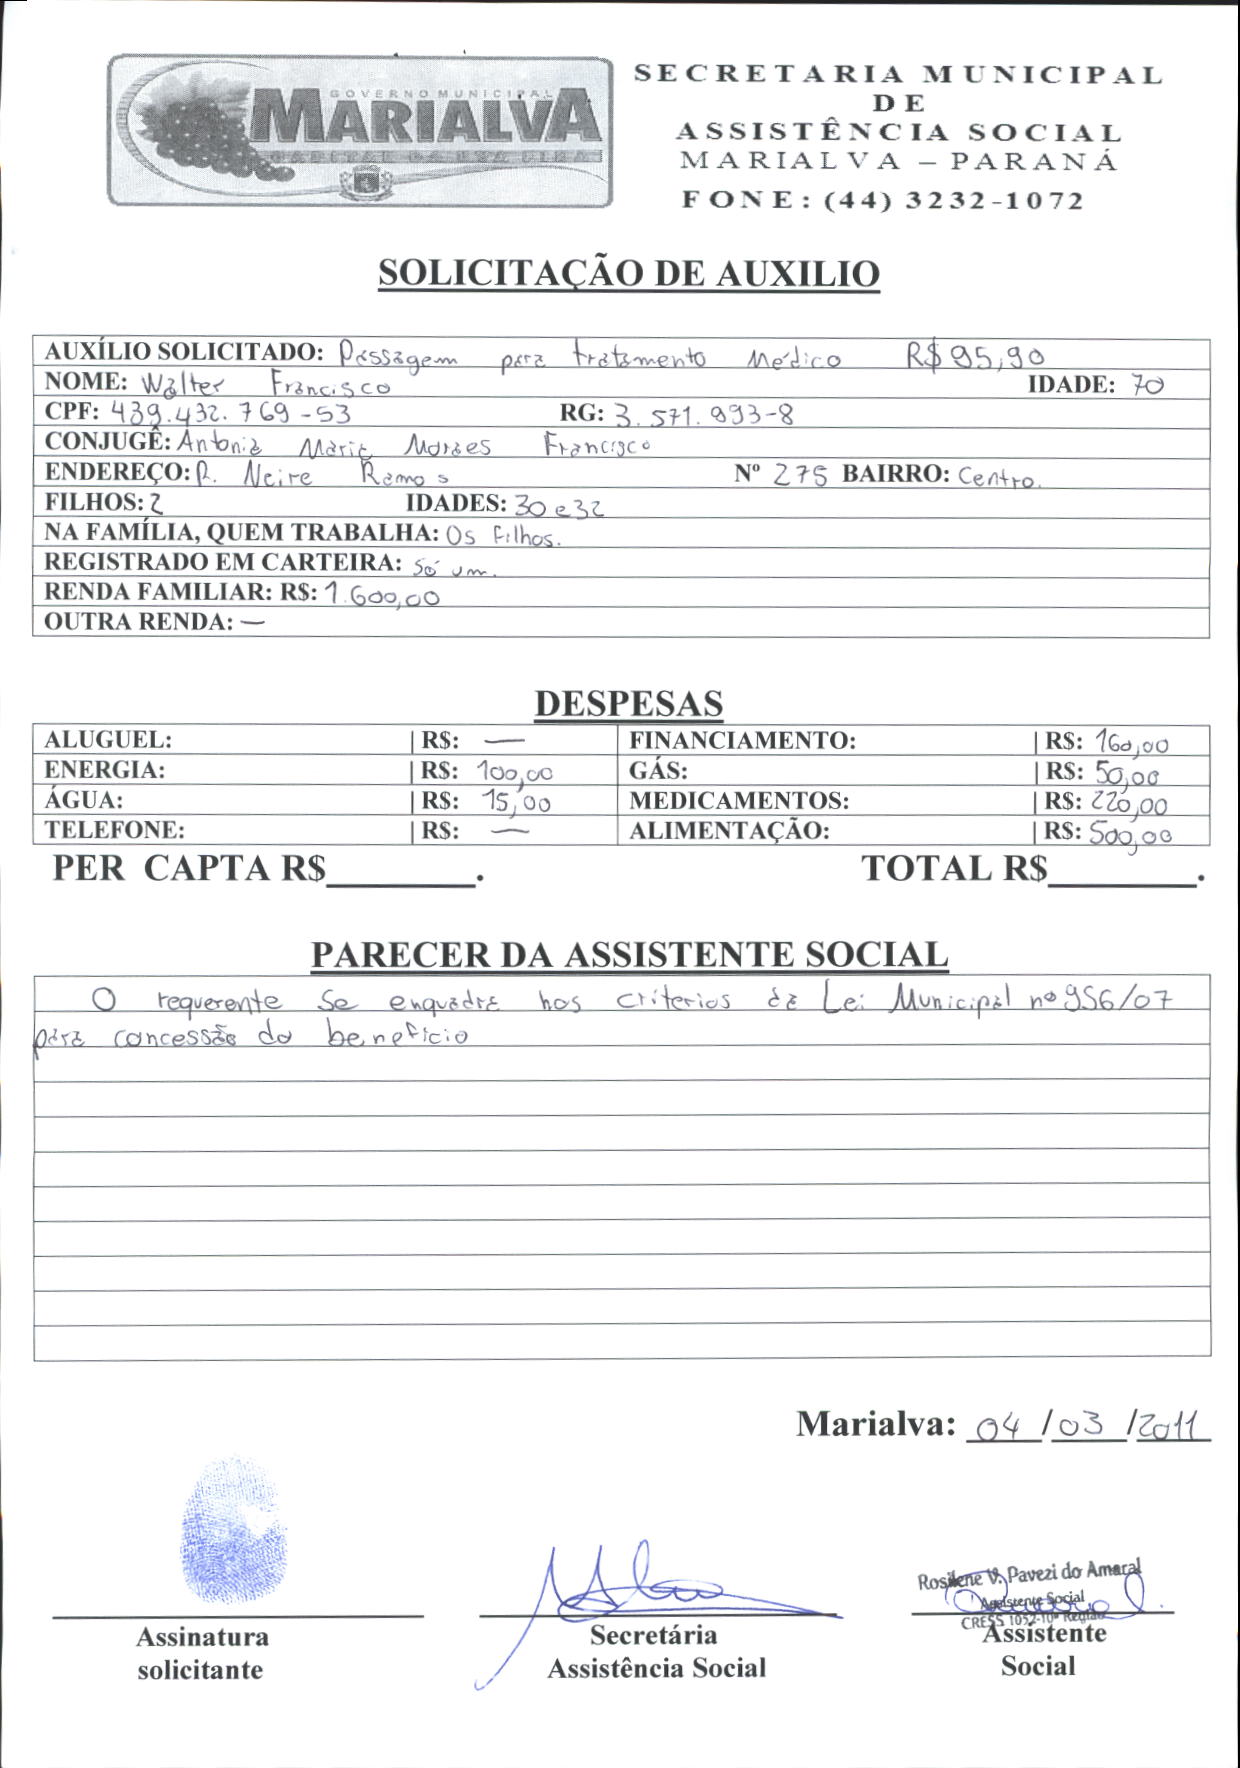 GOVERNO MUNICIPAL
MARIALVA
CAPITAL DA UVA FINA
SECRETARIA MUNICIPAL
DE
ASSISTÊNCIA SOCIAL
MARIALVA – PARANÁ
FONE: (44) 3232-1072
SOLICITAÇÃO DE AUXILIO
AUXÍLIO SOLICITADO: Passagem para tratamento Médico R$ 95,90
NOME: Walter Francisco IDADE: 70
CPF: 439.432.769-53 RG: 3.571.993-8
CONJUGÊ: Antonia Maria Moraes Francisco
ENDEREÇO: R. Neire Ramos Nº 275 BAIRRO: Centro.
FILHOS: 2 IDADES: 30 e 32
NA FAMÍLIA, QUEM TRABALHA: Os Filhos.
REGISTRADO EM CARTEIRA: Só um.
RENDA FAMILIAR: R$: 1.600,00
OUTRA RENDA: —
DESPESAS
ALUGUEL: | R$: — FINANCIAMENTO: | R$: 160,00
ENERGIA: | R$: 100,00 GÁS: | R$: 50,00
ÁGUA: | R$: 15,00 MEDICAMENTOS: | R$: 220,00
TELEFONE: | R$: — ALIMENTAÇÃO: | R$: 500,00
PER CAPTA R$________. TOTAL R$________.
PARECER DA ASSISTENTE SOCIAL
O requerente se enquadra nos criterios da Lei Municipal nº 956/07
para concessão do beneficio
Marialva: 04/03/2011
Rosilene V. Pavezi do Amaral
Assistente Social
CRESS 1052-10ª Região
Assinatura
solicitante
Secretária
Assistência Social
Assistente
Social